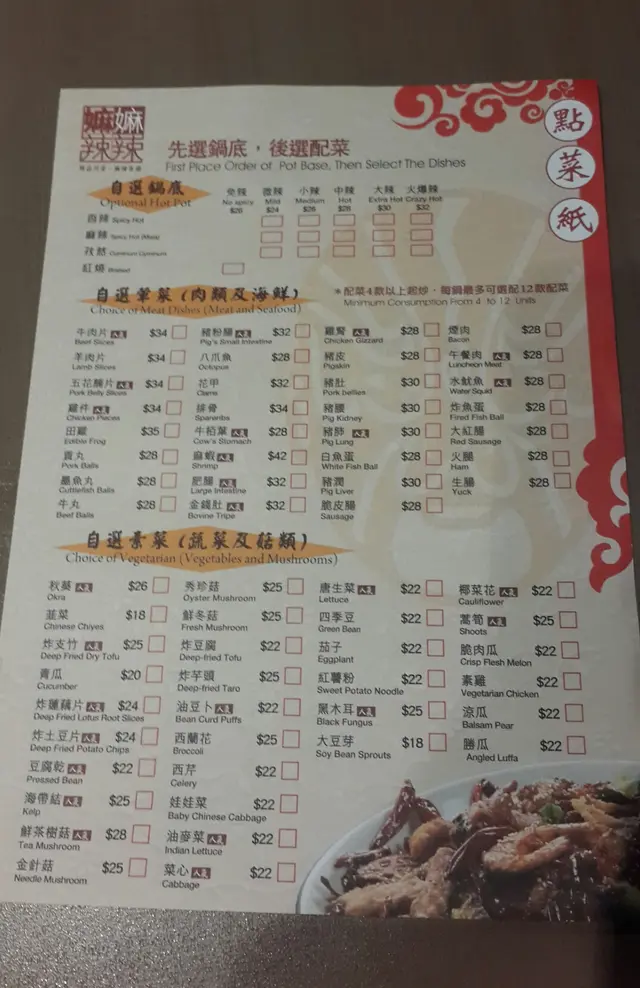 嫲嫲
辣辣
點
菜
紙
先選鍋底，後選配菜
First Place Order of Pot Base, Then Select The Dishes
自選鍋底
Optional Hot Pot
免辣 微辣 小辣 中辣 大辣 火爆辣
No spicy Mild Medium Hot Extra Hot Crazy Hot
$26 $24 $26 $28 $30 $32
香辣 Spicy Hot
麻辣 Spicy Hot (Mala)
孜然 Cuminum Cyminum
紅燒 Braised
自選葷菜 (肉類及海鮮)
Choice of Meat Dishes (Meat and Seafood)
＊配菜4款以上起炒，每鍋最多可選配12款配菜
Minimum Consumption From 4 to 12 Units
牛肉片 人氣 $34 豬粉腸 人氣 $32 雞腎 人氣 $28 煙肉 $28
Beef Slices Pig's Small Intestine Chicken Gizzard Bacon
羊肉片 $34 八爪魚 $28 豬皮 $28 午餐肉 人氣 $28
Lamb Slices Octopus Pigskin Luncheon Meat
五花腩片 人氣 $34 花甲 $32 豬肚 $30 水魷魚 人氣 $28
Pork Belly Slices Clams Pork bellies Water Squid
雞件 人氣 $34 排骨 $34 豬腰 $30 炸魚蛋 $28
Chicken Pieces Spareribs Pig Kidney Fired Fish Ball
田雞 $35 牛栢葉 人氣 $28 豬肺 人氣 $30 大紅腸 $28
Edible Frog Cow's Stomach Pig Lung Red Sausage
貢丸 $28 麻蝦 人氣 $42 白魚蛋 $28 火腿 $28
Pork Balls Shrimp White Fish Ball Ham
墨魚丸 $28 肥腸 人氣 $32 豬潤 $30 生腸 $28
Cuttlefish Balls Large Intestine Pig Liver Yuck
牛丸 $28 金錢肚 人氣 $32 脆皮腸 $28
Beef Balls Bovine Tripe Sausage
自選素菜 (蔬菜及菇類)
Choice of Vegetarian (Vegetables and Mushrooms)
秋葵 人氣 $26 秀珍菇 $25 唐生菜 人氣 $22 椰菜花 人氣 $22
Okra Oyster Mushroom Lettuce Cauliflower
韮菜 $18 鮮冬菇 $25 四季豆 $22 萵筍 人氣 $25
Chinese Chiyes Fresh Mushroom Green Bean Shoots
炸支竹 人氣 $25 炸豆腐 $22 茄子 $22 脆肉瓜 $22
Deep Fried Dry Tofu Deep-fried Tofu Eggplant Crisp Flesh Melon
青瓜 $20 炸芋頭 $25 紅薯粉 $22 素雞 $22
Cucumber Deep-fried Taro Sweet Potato Noodle Vegetarian Chicken
炸蓮藕片 人氣 $24 油豆卜 人氣 $22 黑木耳 人氣 $25 涼瓜 $22
Deep Fried Lotus Root Slices Bean Curd Puffs Black Fungus Balsam Pear
炸土豆片 人氣 $24 西蘭花 $25 大豆芽 $18 勝瓜 $22
Deep Fried Potato Chips Broccoli Soy Bean Sprouts Angled Luffa
豆腐乾 人氣 $22 西芹 $22
Pressed Bean Celery
海帶結 人氣 $25 娃娃菜 $22
Kelp Baby Chinese Cabbage
鮮茶樹菇 人氣 $28 油麥菜 人氣 $22
Tea Mushroom Indian Lettuce
金針菇 $25 菜心 人氣 $22
Needle Mushroom Cabbage